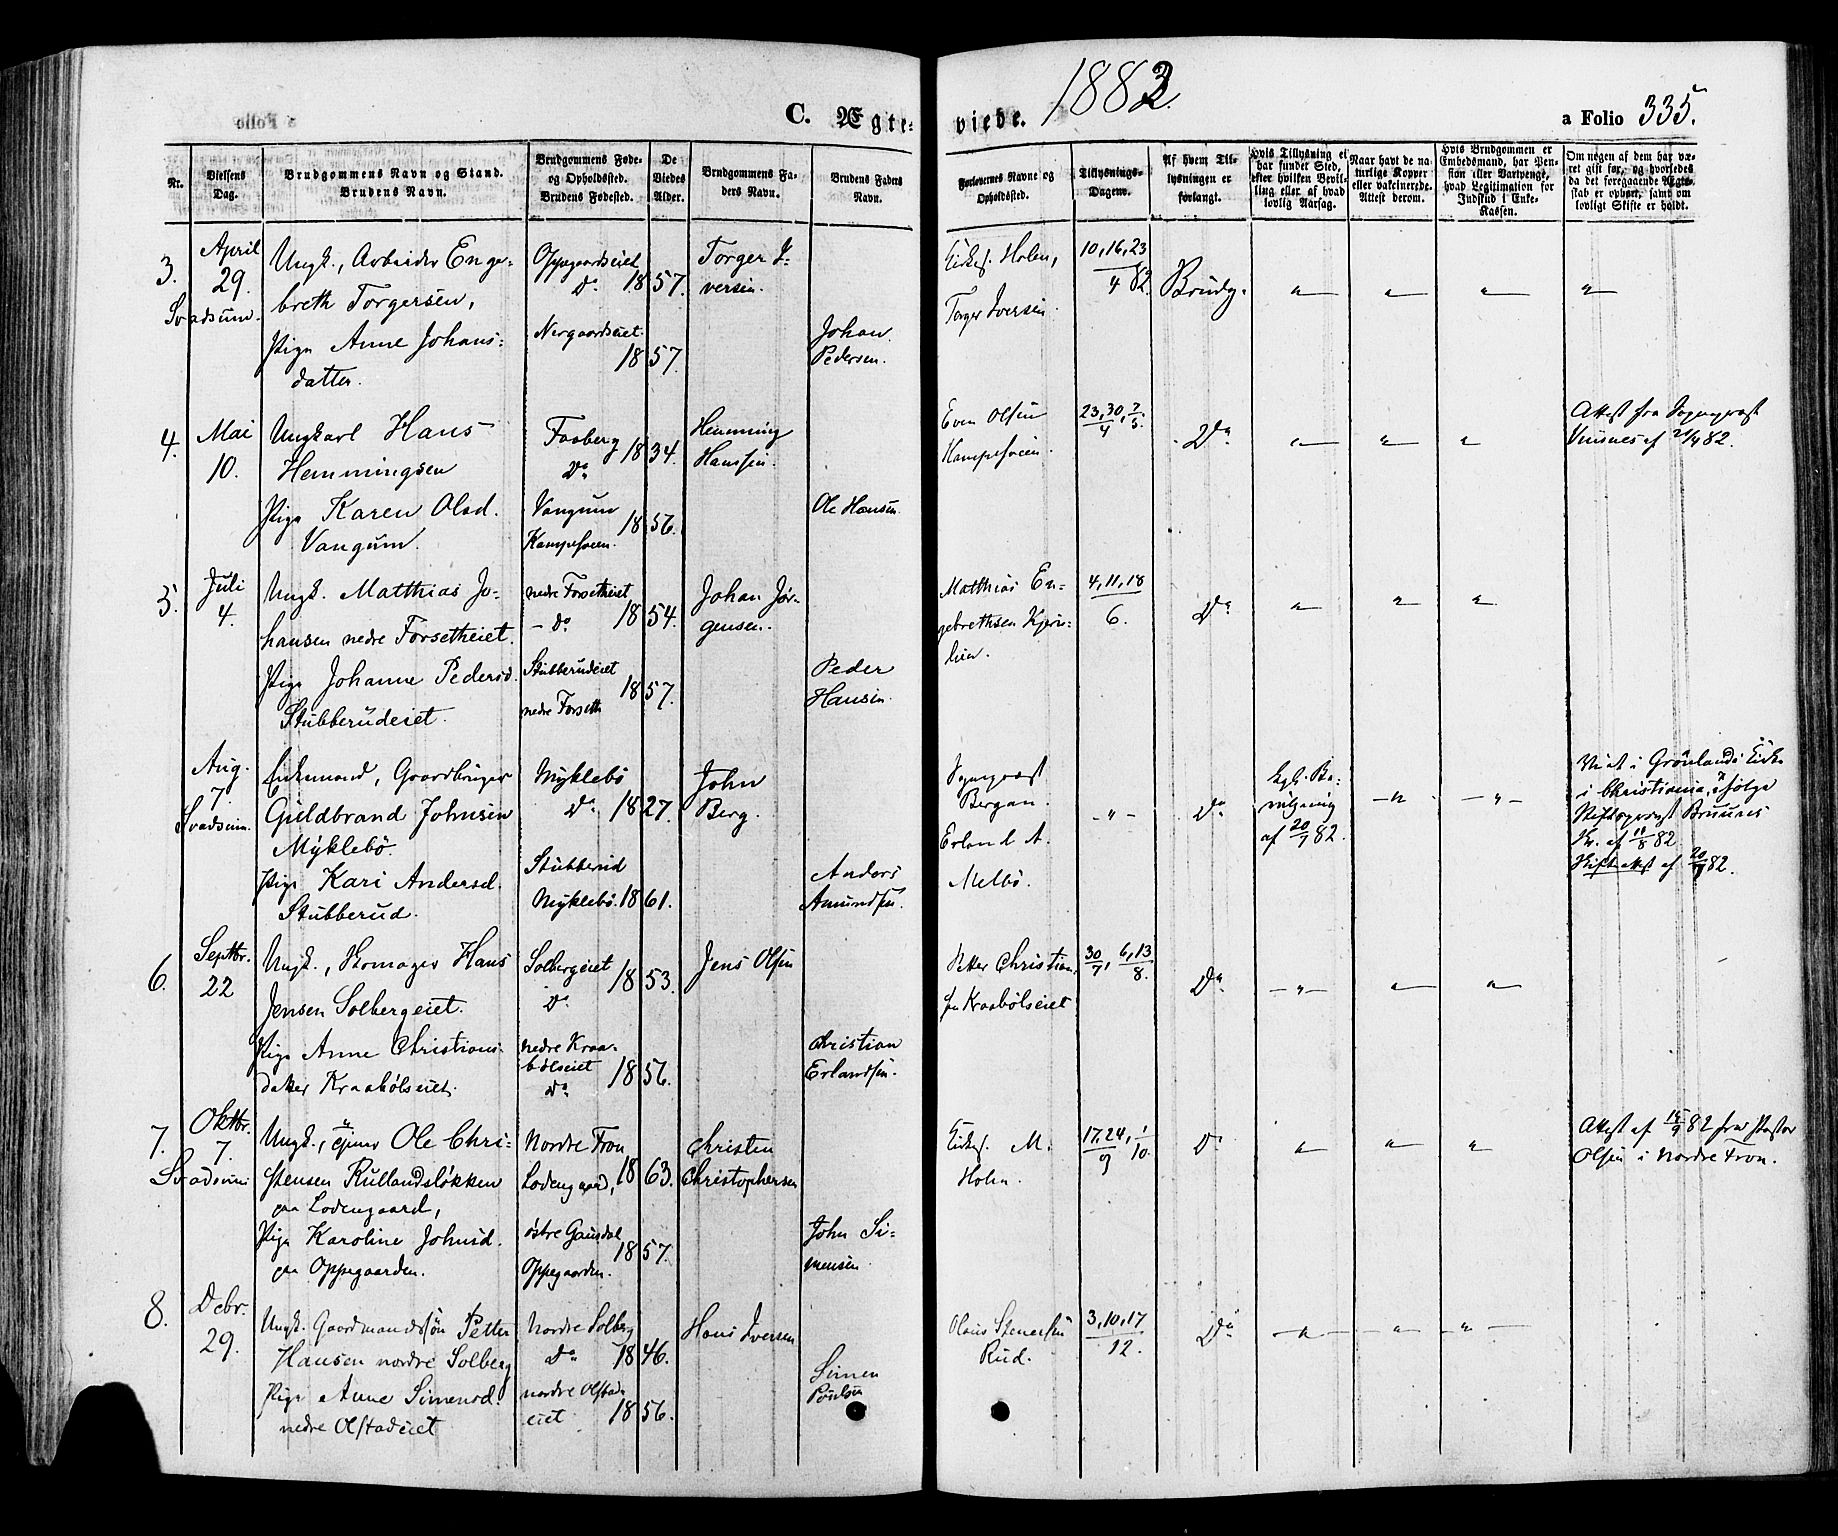 C. Ægte-
viede.
1882
a Folio 335.
Nr.
Vielsens Dag.
Brudgommens Navn og Stand.
Brudens Navn.
Brudgommens Føde- og Opholdssted.
Brudens Fødested.
De Viedes Alder.
Brudgommens Faders Navn.
Brudens Faders Navn.
Forlovernes Navne og Opholdssted.
Tillysnings-Dagene.
Af hvem Tillysningen er forlangt.
Hvis Tillysning ei har fundet Sted, efter hvilken Bevilling eller af hvad lovlig Aarsag.
Naar havt de naturlige Kopper eller vakcinerede. Attest derom.
Hvis Brudgommen er Embedsmand, har Pension eller Vartpenge, hvad Legitimation for Indskud i Enke-Kassen.
Om nogen af dem har været gift før, og hvorledes da det foregaaende Ægteskab er ophørt, samt om lovligt Skifte er holdt.
3. April 29. Svadsum.
Ungk., Arbeider Engebreth Torgersen,
Oppegaardseiet Do 1857.
Torger Iversen.
Pige Anne Johansdatter.
Nergaardseiet 1857.
Johan Pedersen.
Kirkes. Holen,
Torger Iversen.
10, 16, 23/4 82.
Brudg.
4. Mai 10.
Ungkarl Hans Hemmingsen
Faaberg Do 1834.
Hemming Hanssen.
Pige Karen Olsd. Vangum.
Vangum Kampesveen. 1856.
Ole Hansen.
Even Olsen Kampesveen.
23, 30/4, 7/5.
Do
Attest fra Sogneprest
af 21/4 82.
5. Juli 4.
Ungk. Matthias Johansen nedre Forsetheiet.
nedre Forsetheiet - Do 1854.
Johan Jørgensen.
Pige Johanne Pedersd. Stubberudeiet.
Stubberudeiet nedre Forseth 1857.
Peder Hansen.
Matthias Engebrethsen
4, 11, 18/6.
Do
Aug. 7. Svadsum.
Enkemand, Gaardbruger Guldbrand Johnsen Myklebö.
Myklebö Do 1827.
John Berg.
Pige Kari Andersd. Stubberud.
Stubberud Myklebö. 1861.
Anders Amundsen.
Sogneprest Bergan.
Erland A. Melbö.
Do
Kgl. Bevilgning af 20/7 82.
Viet i Grönlands Kirke i Christiania, ifölge Stiftsprovst Bruuns
af 11/8 82
Skifteattest af 20/7 82.
6. Septbr. 22
Ungk., Skomager Hans Jensen Solbergeiet.
Solbergeiet Do 1853.
Jens Olsen
Pige Anne Christiansdatter Kraabölseiet.
nedre Kraabölseiet Do 1856.
Christian Erlandsen.
Petter Christiansen Kraabölseiet
30/7, 6, 13/8.
Do
7. Oktbr. 7. Svadsum
Ungk., Ole Christensen Rullandsløkken paa Lodengaard,
Nordre Fron Lodengaard, 1863.
Christen Christophersen
Pige Karoline Johnsd. paa Oppegaarden.
østre Gausdal Oppegaarden. 1857.
John Simensen.
Kirkes. M. Holen.
17, 24/9, 1/10.
Do
Attest af 15/9 82 fra Pastor Olsen i Nordre Fron.
8. Debr. 29.
Ungk. Gaardmandssøn Petter Hansen nordre Solberg
Nordre Solberg Do 1846.
Hans Iversen
Pige Anne Simensd. nedre Olstadeiet
nordre Olstadeiet 1856.
Simen Poulsen
Olaus Stenersen Rud.
3, 10, 17/12.
Do